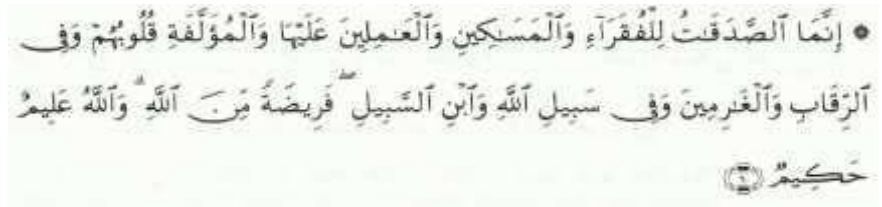 ۞ إِنَّمَا ٱلصَّدَقَـٰتُ لِلْفُقَرَآءِ وَٱلْمَسَـٰكِينِ وَٱلْعَـٰمِلِينَ عَلَيْهَا وَٱلْمُؤَلَّفَةِ قُلُوبُهُمْ وَفِى
ٱلرِّقَابِ وَٱلْغَـٰرِمِينَ وَفِى سَبِيلِ ٱللَّهِ وَٱبْنِ ٱلسَّبِيلِ ۖ فَرِيضَةً مِّنَ ٱللَّهِ ۗ وَٱللَّهُ عَلِيمٌ
حَكِيمٌ